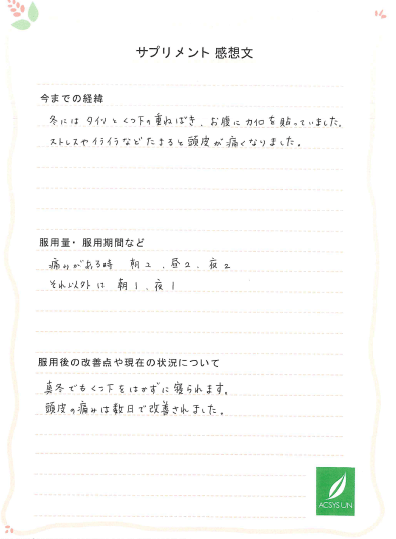 サプリメント 感想文
今までの経緯
冬には タイツと くつ下の重ねばき、お腹に カイロを 貼っていました。
ストレスやイライラなどたまると 頭皮が 痛くなりました。
服用量・服用期間など
痛みがある時 朝2、昼2、夜2
それ以外は 朝1、夜1
服用後の改善点や現在の状況について
真冬でもくつ下をはかずに寝られます。
頭皮の痛みは数日で改善されました。
ACSYS UN